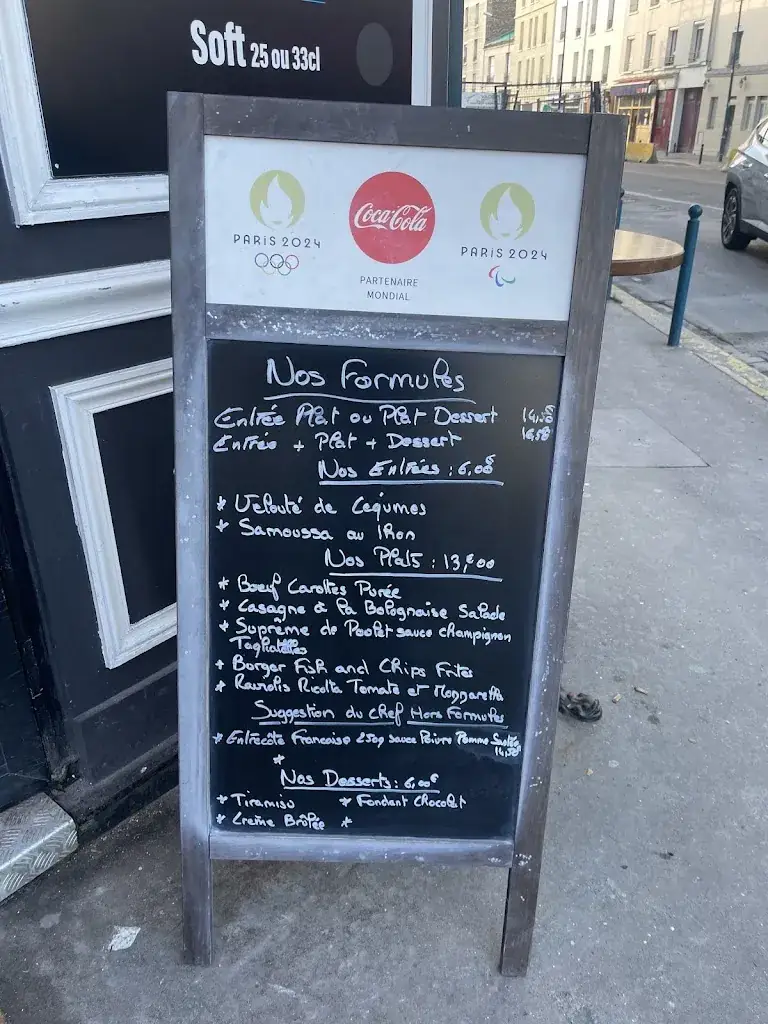 Soft 25 ou 33cl
PARIS 2024
Coca-Cola
PARIS 2024
PARTENAIRE
MONDIAL
Nos Formules
Entrée Plat ou Plat Dessert 14,50
Entrée + Plat + Dessert 16,50
Nos Entrées : 6,00€
* Velouté de Légumes
* Samoussa au Thon
Nos Plats : 13,€00
* Boeuf Carottes Purée
* Lasagne à la Bolognaise Salade
* Suprême de Poulet sauce champignon
Tagliatelles
* Borger Fish and Chips Frites
* Raviolis Ricotta Tomate et Mozzarella
Suggestion du chef Hors Formules
* Entrecôte Francaise 250g sauce Poivre Pomme Sautée
14,50€
*
Nos Desserts : 6,00€
* Tiramisu * Fondant Chocolat
* Creme Brûlée *